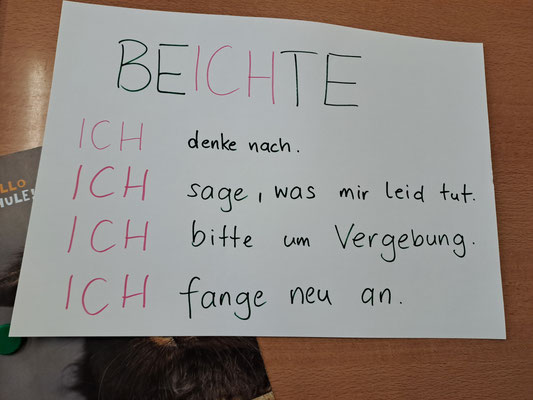 BEICHTE
ICH denke nach.
ICH sage, was mir leid tut.
ICH bitte um Vergebung.
ICH fange neu an.
LLO
HULE!